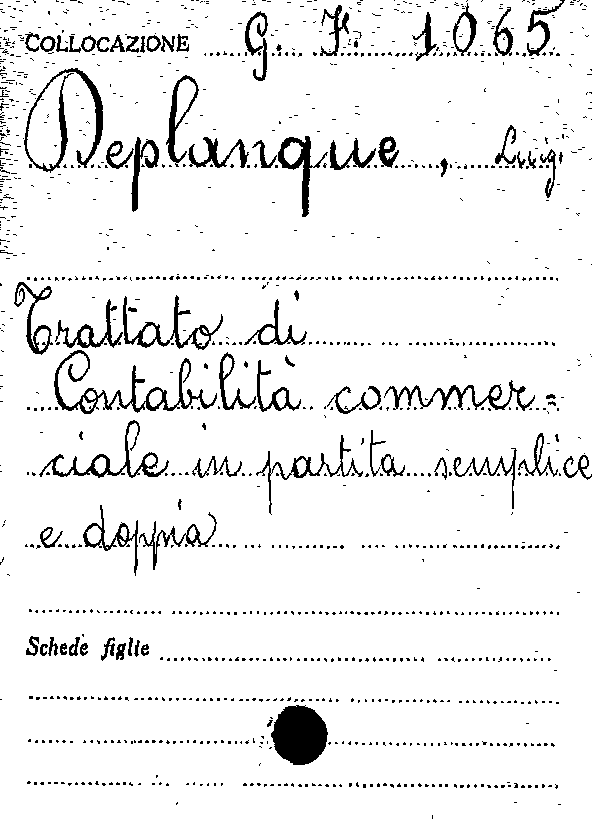 COLLOCAZIONE G. F. 1065
Deplanque, Luigi
Trattato di
Contabilità commer=
ciale in partita semplice
e doppia
Schede figlie